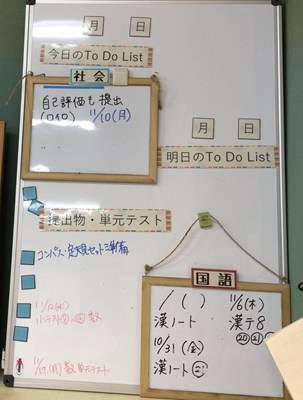 月 日
今日のTo Do List
社会
自己評価も 提出
(ロイロ) 11/10(月)
月 日
明日のTo Do List
提出物・単元テスト
コンパス・定規セット準備
11/12(水)
数
11/17(月) 数 単元テスト
国語
/ ( )
漢ノート
10/31 (金)
漢ノート
11/6(木)
漢テ8
⑳ ㉑